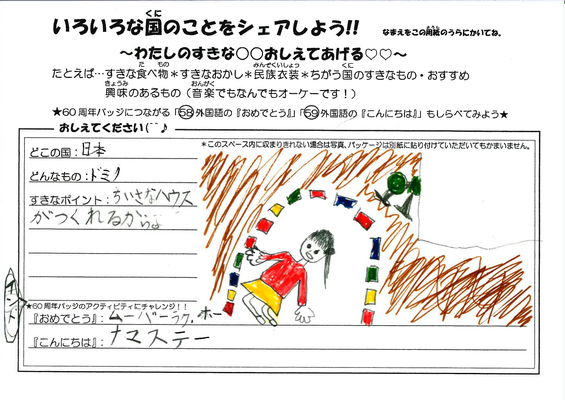 いろいろな国のことをシェアしよう!! なまえをこの用紙のうらにかいてね。
～わたしのすきな○○おしえてあげる♡♡～
たとえば…すきな食べ物＊すきなおかし＊民族衣装＊ちがう国のすきなもの・おすすめ
興味のあるもの（音楽でもなんでもオーケーです！）
★60周年バッジにつながる「58外国語の『おめでとう』」「59外国語の『こんにちは』」もしらべてみよう★
おしえてください(^^♪
＊このスペース内に収まりきれない場合は写真、パッケージは別紙に貼り付けていただいてもかまいません。
どこの国：日本
どんなもの：ドミノ
すきなポイント：ちいさなハウス
がつくれるからよ
★60周年バッジのアクティビティにチャレンジ！！
『おめでとう』：ムーバーラク、ホー
『こんにちは』：ナマステー
インド